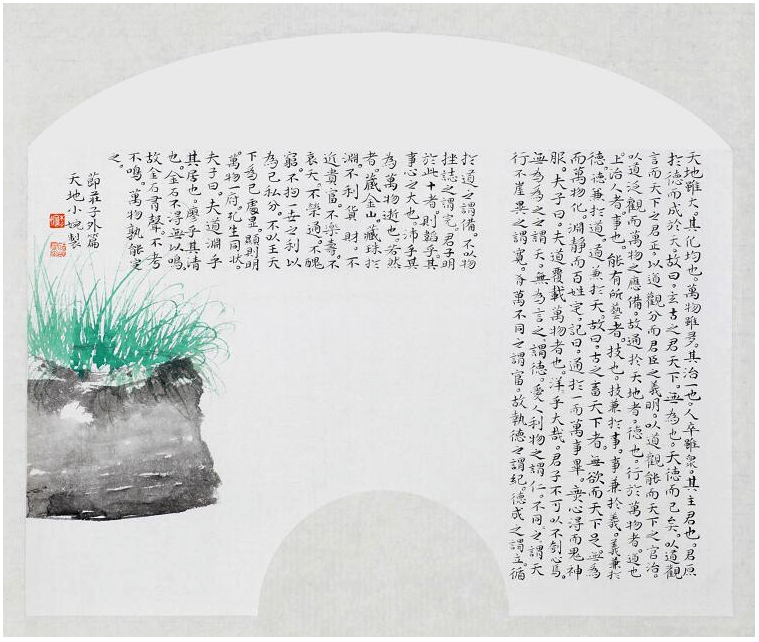 天地雖大。其化均也。萬物雖多。其治一也。人卒雖衆。其主君也。君原
於德而成於天。故曰。玄古之君天下。無為也。天德而已矣。以道觀
言而天下之君正。以道觀分而君臣之義明。以道觀能而天下之官治。
以道泛觀而萬物之應備。故通於天地者。德也。行於萬物者。道也
上治人者。事也。能有所藝者。技也。技兼於事。事兼於義。義兼於
德。德兼於道。道兼於天。故曰。古之畜天下者。無欲而天下足。無為
而萬物化。淵靜而百姓定。記曰。通於一而萬事畢。無心得而鬼神
服。夫子曰。夫道覆載萬物者也。洋乎大哉。君子不可以不刳心焉。
無為為之之謂天。無為言之。謂德。愛人利物之謂仁。不同。之謂大
行不崖異之謂寬。有萬不同之謂富。故執德之謂紀。德成之謂立。循
於道之謂備。不以物
挫志之謂完。君子明
於此十者。則韜乎其
事心之大也。沛乎其
為萬物逝也。若然
者。藏金山。藏珠於
淵。不利貨財。不
近貴富。不樂壽。不
哀夭。不榮通。不醜
窮。不拘一世之利以
為己私分。不以王天
下為己處顯。顯則明
萬物一府。死生同狀。
夫子曰。夫道淵乎
其居也。漻乎其清
也。金石不得無以鳴。
故金石有聲。不考
不鳴。萬物孰能定
之。
節莊子外篇
天地小婉製